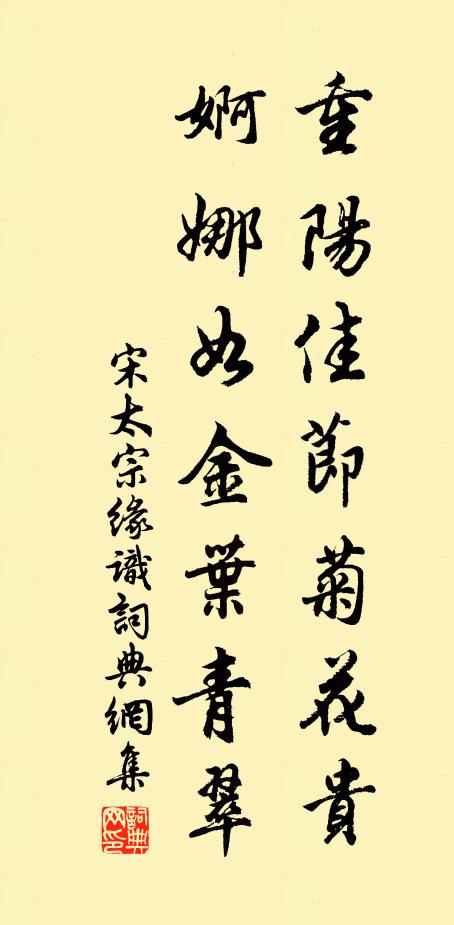 重陽佳節菊花貴
婀娜如金葉青翠
宋太宗緣識詞典網集
詞典網印